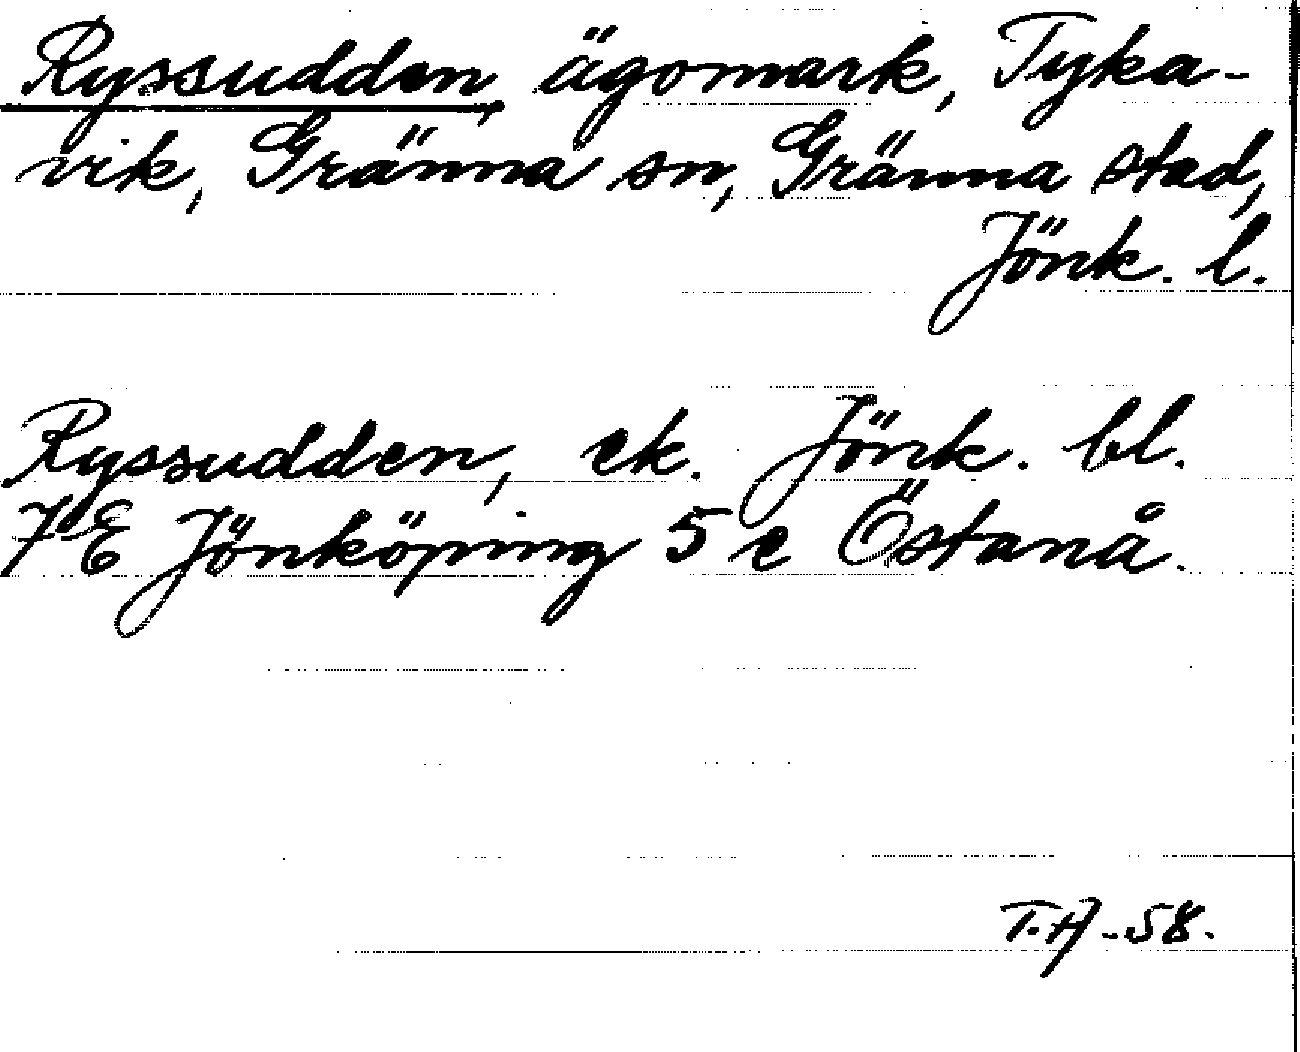 Ryssudden, ägomark, Tyka-
vik, Gränna sn, Gränna stad,
Jönk. l.
Ryssudden, ek. Jönk. bl.
7 E Jönköping 5 e Östanå.
T.H -58.